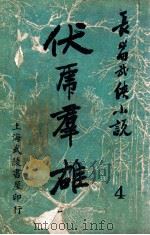 長篇武俠小説
伏虎羣雄
4
上海武陵書屋印行